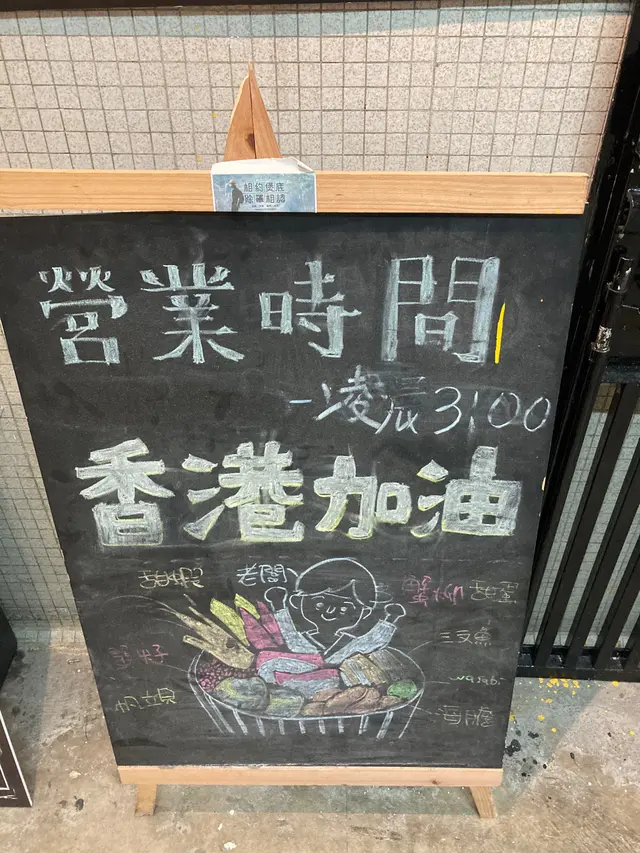 組約便底
除罩組認
營業時間
-凌晨3:00
香港加油
甜蝦 老闆 蟹柳 甜蛋
三文魚
蟹籽
wasabi
帆立貝
海膽